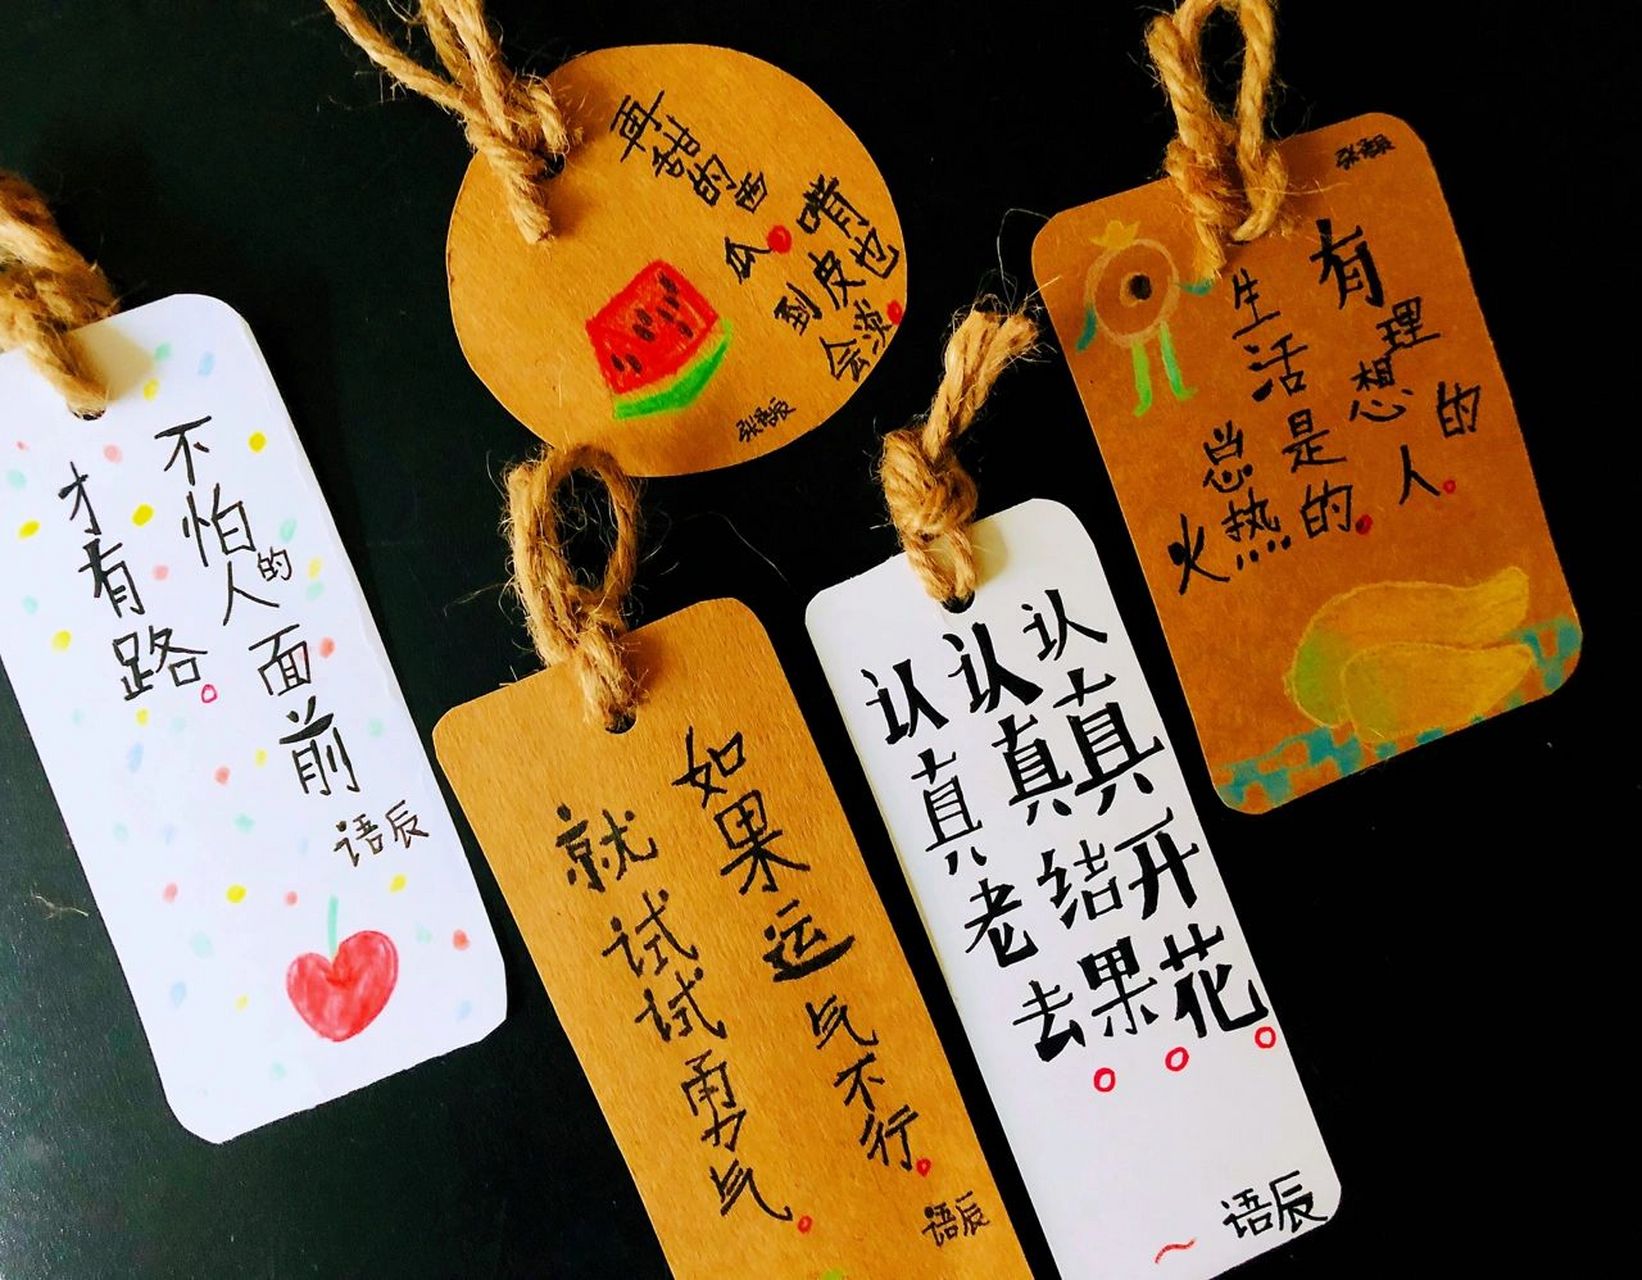 不怕的人面前
才有路。
语辰
再甜的西瓜。
啃到皮也会淡。
张语辰
如果运气不行。
就试试勇气。
语辰
认真开花。
认真结果。
认真老去。
语辰
张语辰
有理想的人。
生活总是火热的。